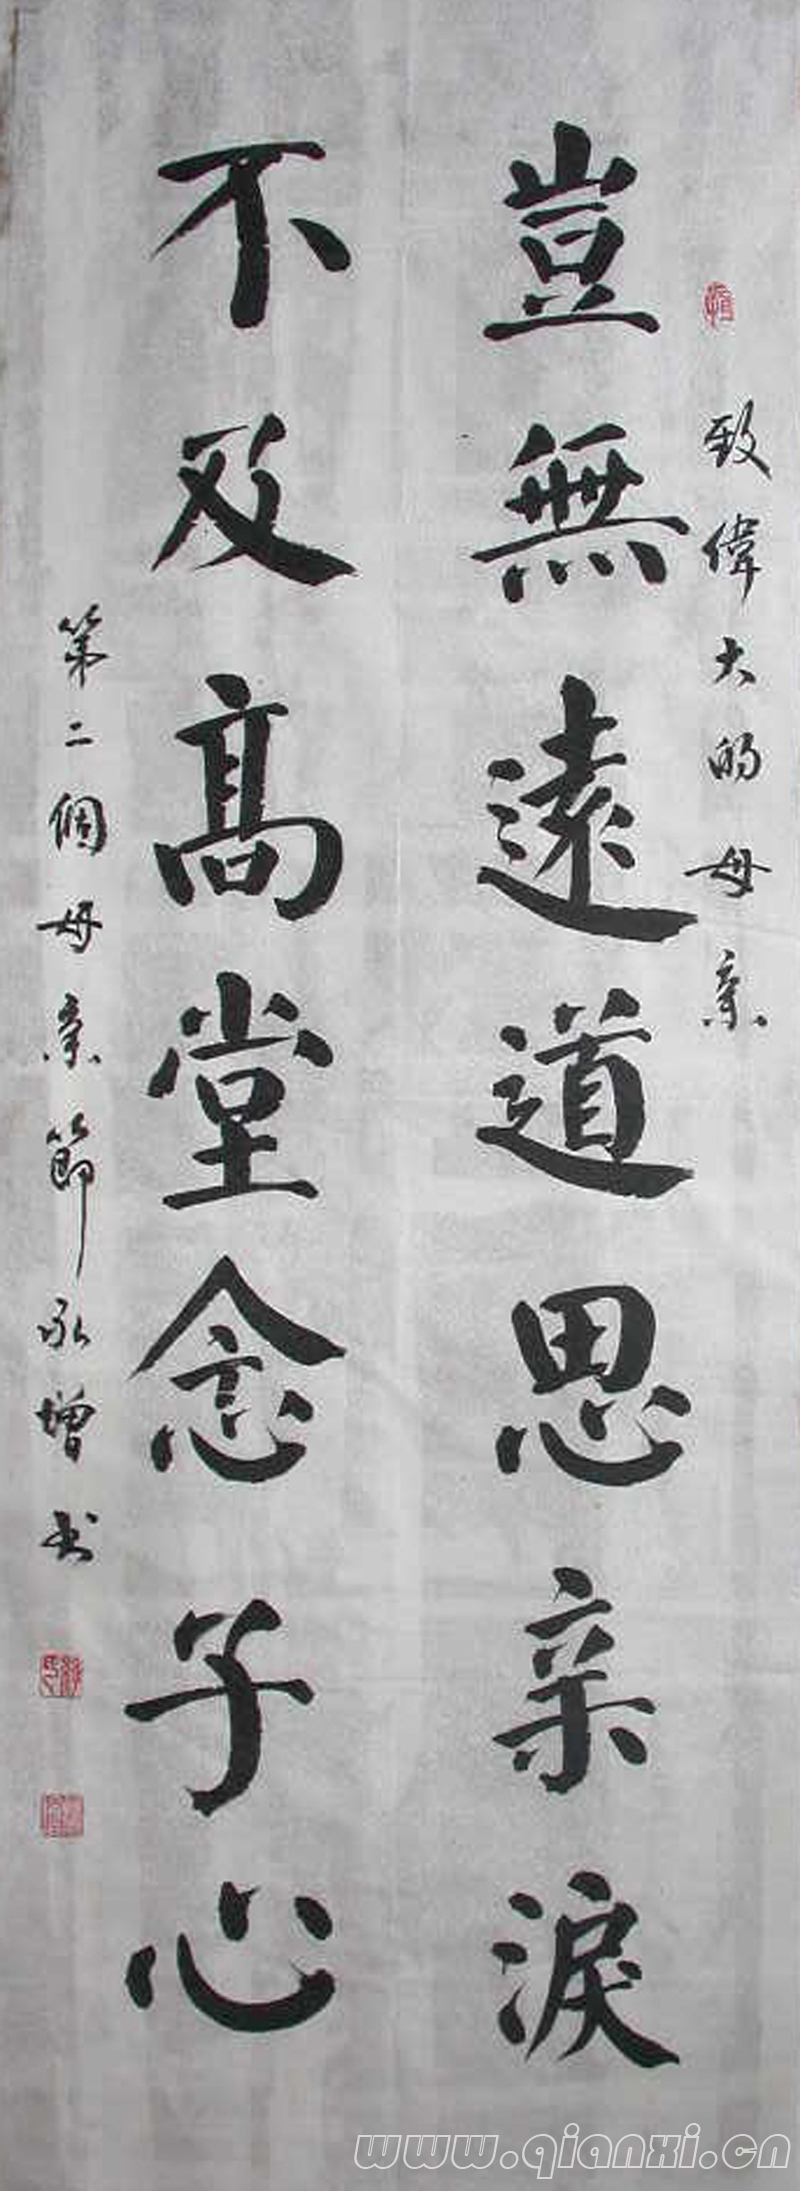 致偉大的母亲
豈無遠道思亲淚
不及高堂念子心
第二個母亲節永增书
www.qianxi.cn